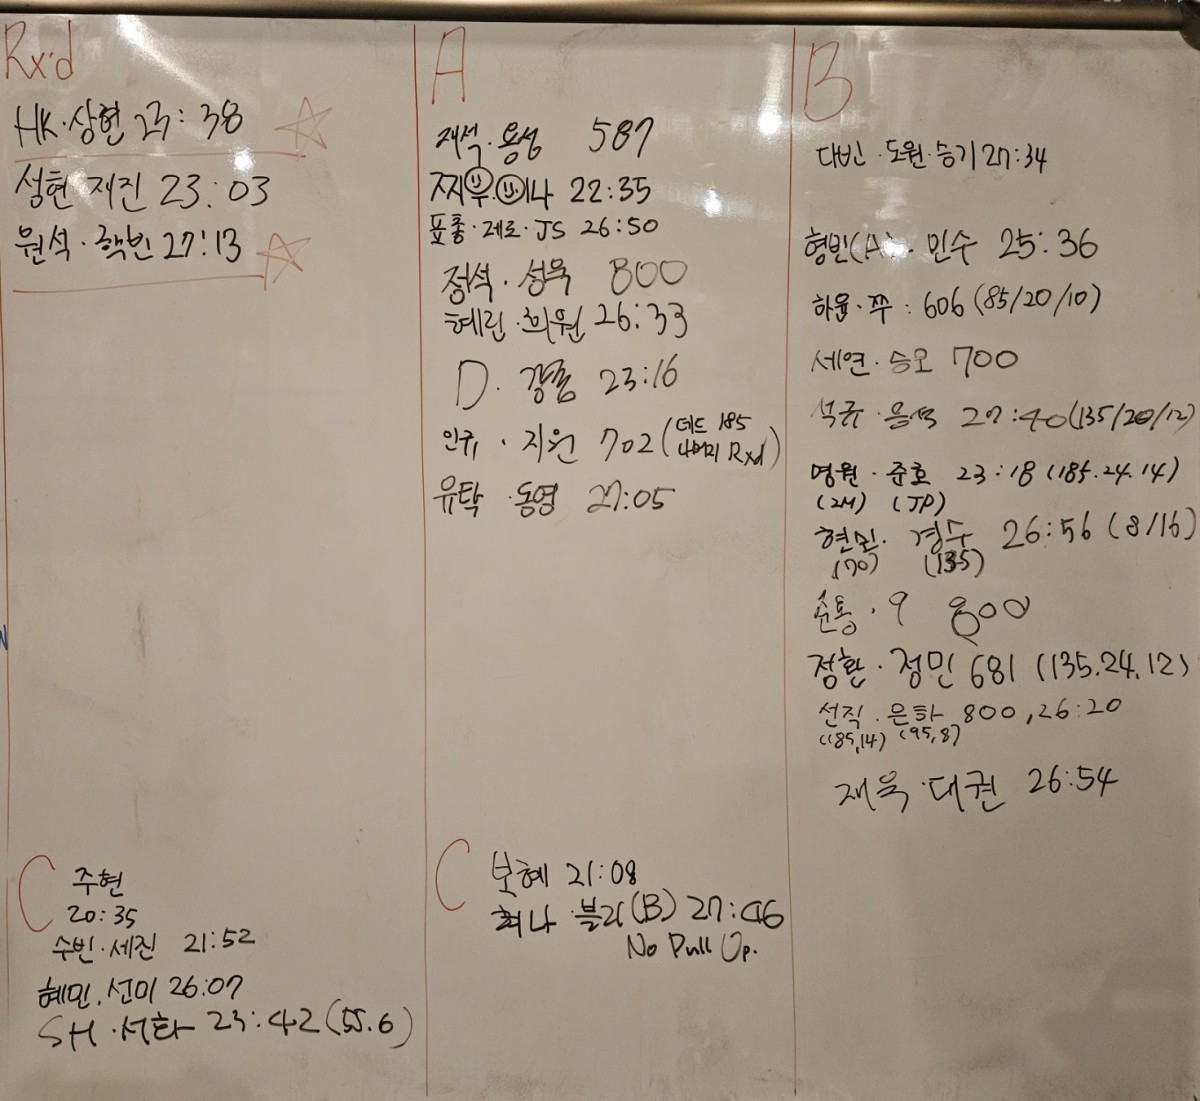 Rx'd
HK·상현 23:38
성현 재진 23:03
원석·핵빈 27:13
C
주현
20:35
수빈·세진 21:52
혜민, 선미 26:07
SH·서화 23:42 (55.6)
A
재석·용성 587
찌우·나 22:35
표총·제로·JS 26:50
정석·성욱 800
혜린·희원 26:33
D. 23:16
인규·지원 702 (데드 185
나머지 Rxd)
유탁·동영 27:05
C
보혜 21:08
희나·블리(B) 27:46
No Pull Up.
B
대빈·도원·승기 27:34
형빈(A)·민수 25:36
하윤·쭈: 606 (85/20/10)
세연·승모 700
석규·용석 27:40 (135/20/12)
영원·준호 23:18 (185.24.14)
(2M) (JP)
현민·경수 26:56 (8/16)
(70) (135)
순통·9 800
정환·정민 681 (135.24.12)
선직·은하 800, 26:20
(185,14) (95,8)
재욱·대권 26:54